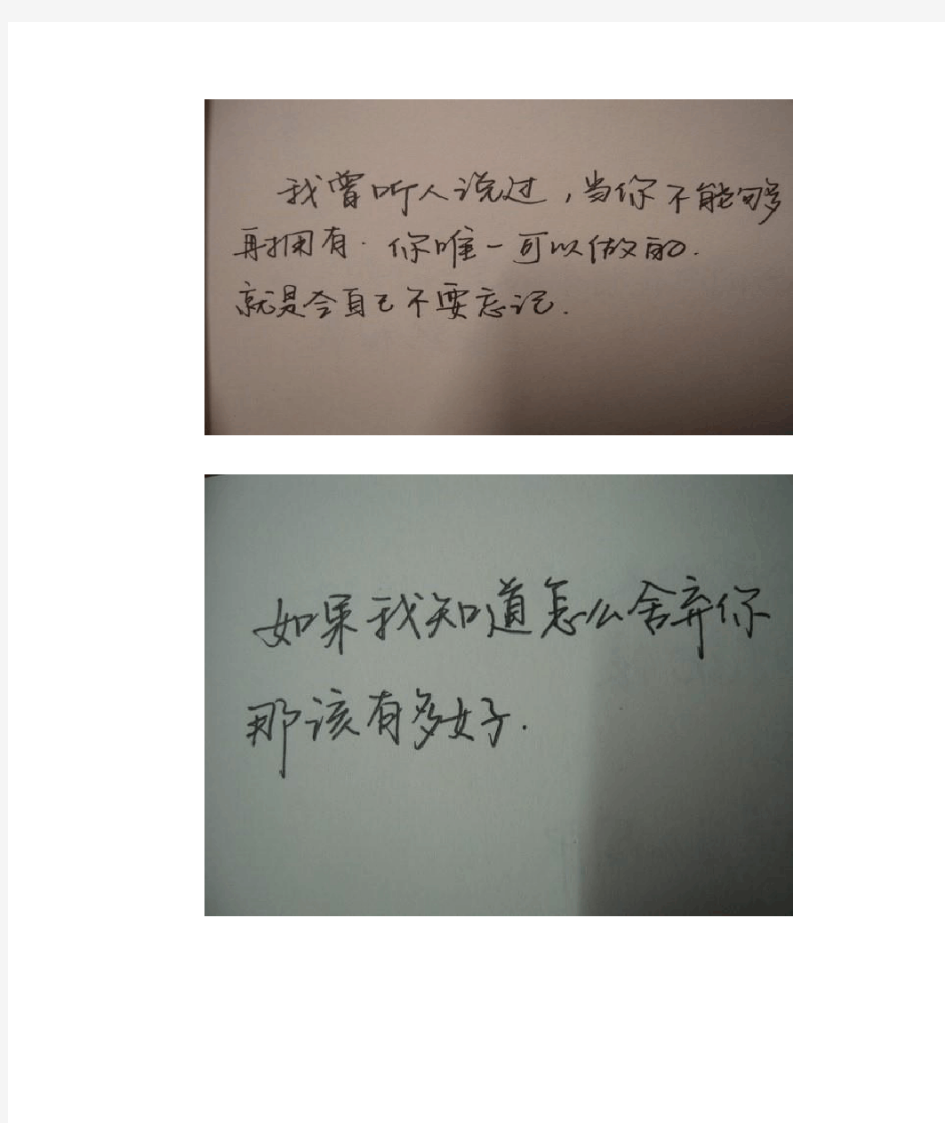 我曾听人说过，当你不能够
再拥有．你唯一可以做的．
就是令自己不要忘记．
如果我知道怎么舍弃你
那该有多好．